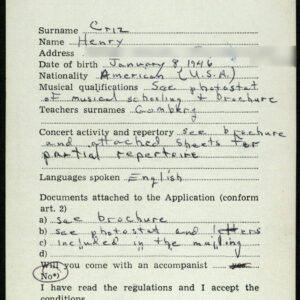 Surname Criz
Name Henry
Address
Date of birth January 8, 1946
Nationality American (U.S.A)
Musical qualifications See photostat
of musical schooling & brochure
Teachers surnames
Concert activity and repertory see brochure
and attached sheets for
partial repertoire
Languages spoken English
Documents attached to the Application (conform
art. 2)
a) see brochure
b) see photostat and letters
c) included in the mailing
d)
Will you come with an accompanist yes
No*)
I have read the regulations and I accept the
conditions